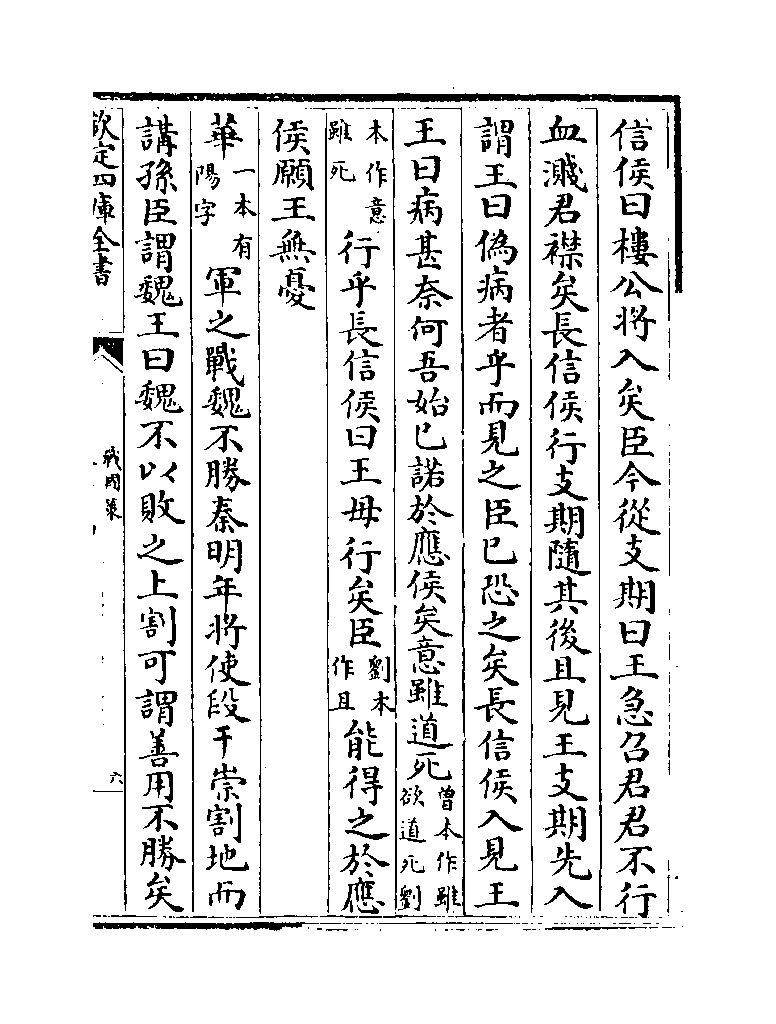 信侯曰樓公將入矣臣今從支期曰王急召君君不行
血濺君襟矣長信侯行支期隨其後且見王支期先入
謂王曰偽病者乎而見之臣已恐之矣長信侯入見王
王曰病甚奈何吾始已諾於應侯矣意雖道死曾本作雖欲道死劉
本作意雖死行乎長信侯曰王毋行矣臣劉本作且能得之於應
侯願王無憂
華一本有陽字軍之戰魏不勝秦明年將使段干崇割地而
講孫臣謂魏王曰魏不以敗之上割可謂善用不勝矣
欽定四庫全書
戰國策
六